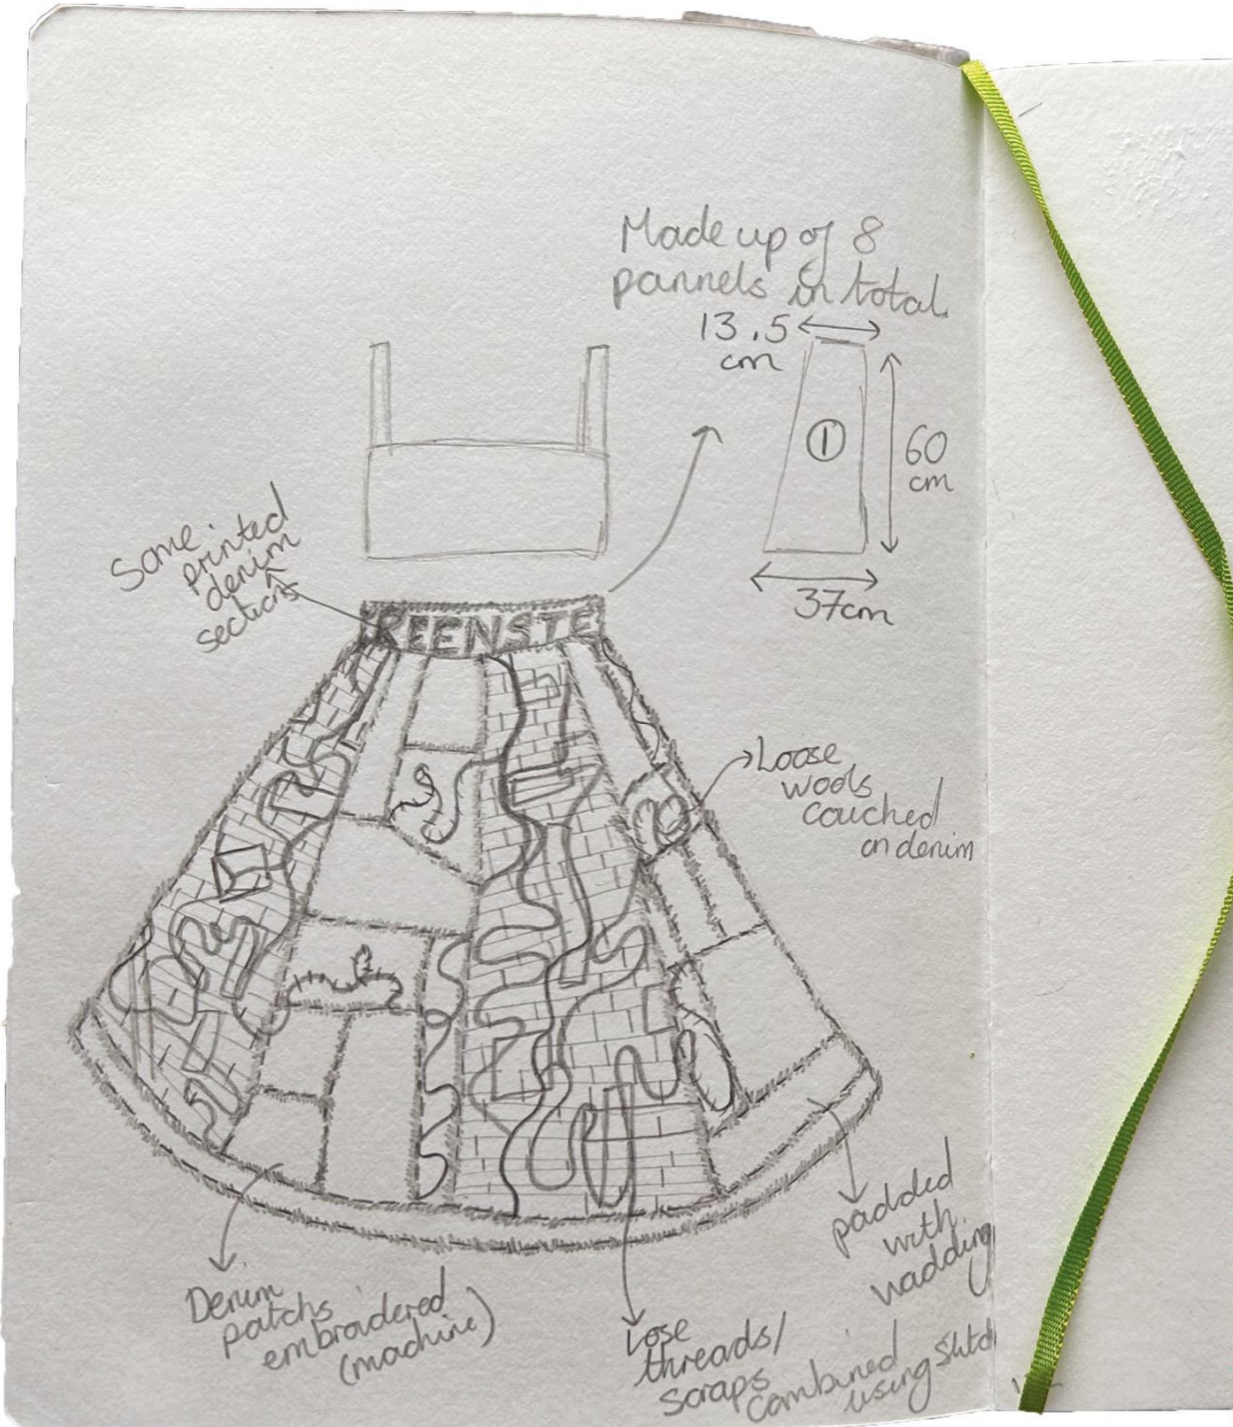 Made up of 8
pannels in total.
13.5
cm
1
60
cm
37cm
Some
printed
denim
sections
REENSTE
Loose
wools
couched
on denim
padded
with
wadding
Denim
patchs
embroidered
(machine)
Lose
threads/
scraps
combined
using stitch